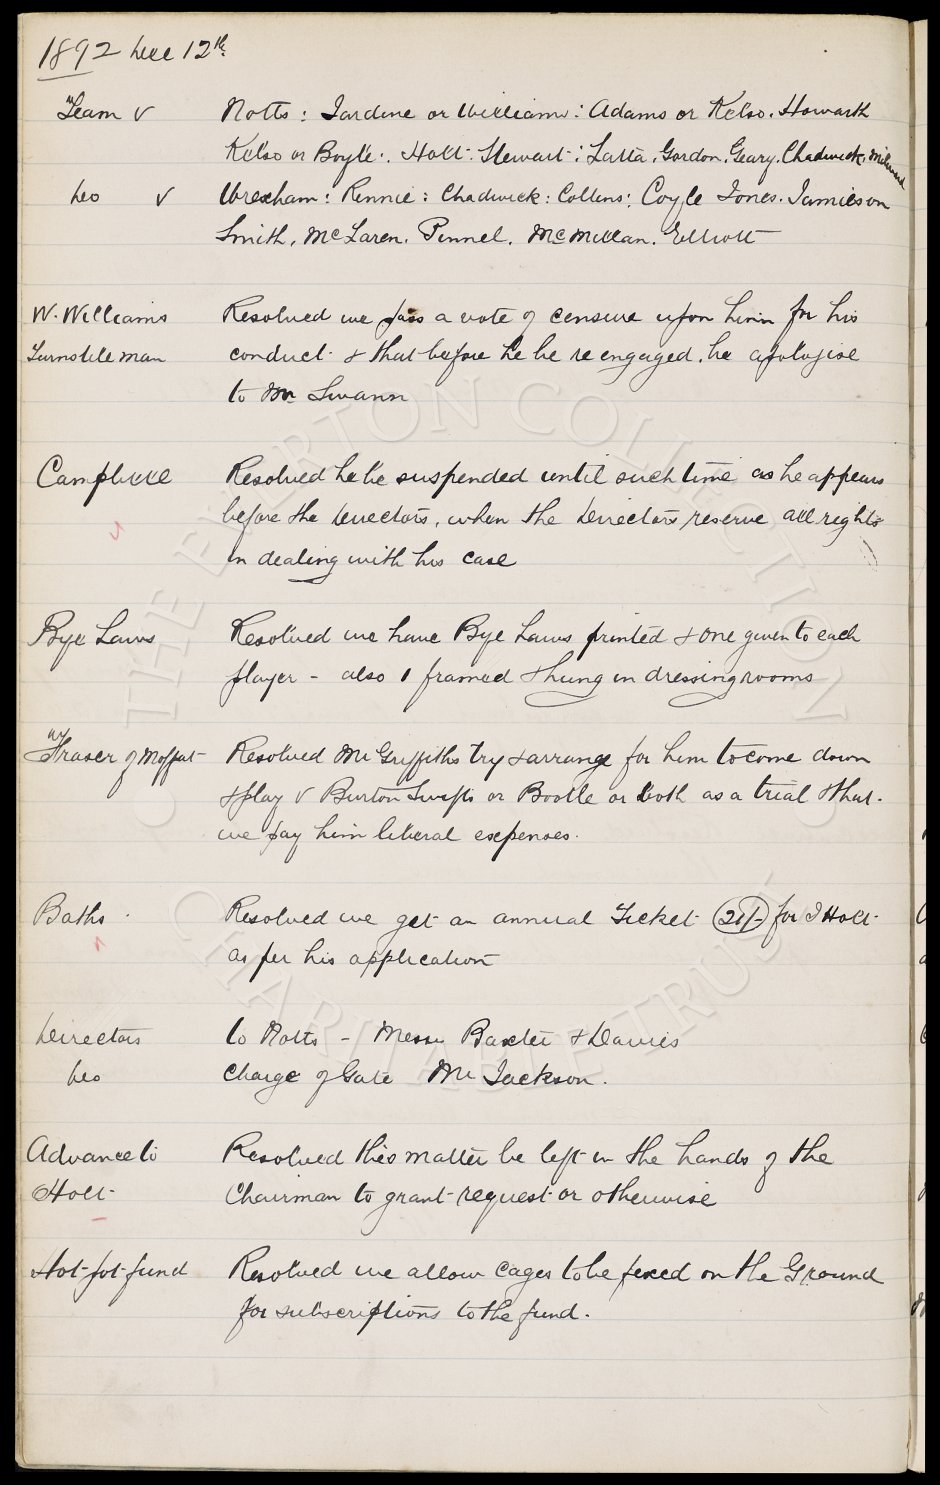 1892 Dec 12th
Team v Notts: Jardine or Williams: Adams or Kelso. Howarth
Kelso or Boyle:. Holt: Stewart: Latta. Gordon. Geary. Chadwick. Milward
Do v Wrexham: Rennie: Chadwick: Collins: Coyle Jones. Jamieson
Smith. McLaren. Pinnel. McMillan. Elliott
W. Williams Resolved we pass a vote of censure upon him for his
Turnstile man conduct & that before he be re engaged, he apologise
to Mr Swann
Campbell Resolved he be suspended until such time as he appears
before the Directors, when the Directors reserve all rights
in dealing with his case
Bye Laws Resolved we have Bye Laws printed & one given to each
player - also 1 framed & hung in dressing rooms
Fraser of Moffat Resolved Mr Griffiths try & arrange for him to come down
& play v Burton Swifts or Bootle or both as a trial & that
we pay him liberal expenses.
Baths Resolved we get an annual Ticket (21/-) for J Holt
as per his application
Directors to Notts - Messrs Baxter & Davies
Do Charge of Gate Mr Jackson.
Advance to Resolved this matter be left in the hands of the
Holt Chairman to grant request or otherwise
Hot-pot-fund Resolved we allow cages to be fixed on the Ground
for subscriptions to the fund.
THE EVERTON COLLECTION
CHARITABLE TRUST